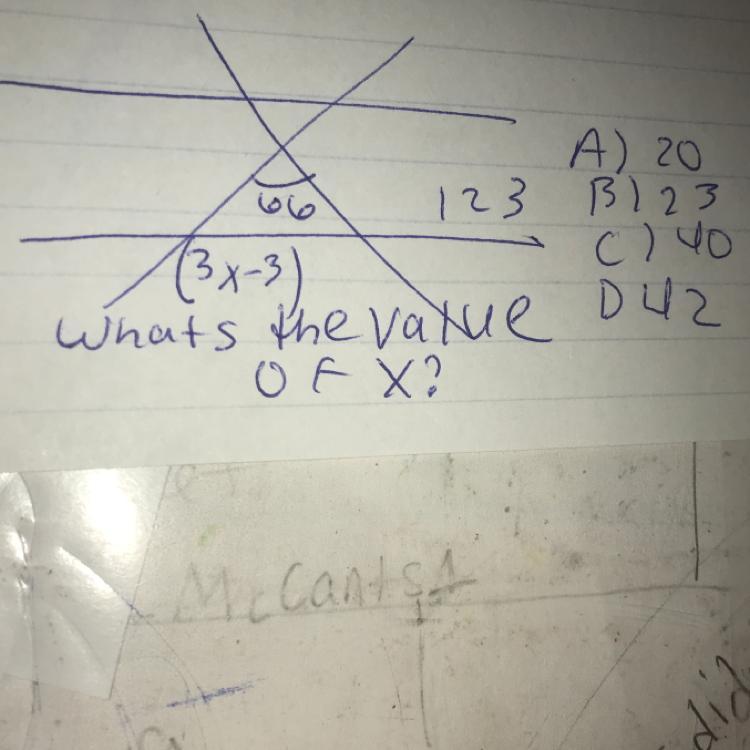 66
123
(3x-3)
A) 20
B) 23
C) 40
D 42
Whats the value
OF X?
McCants